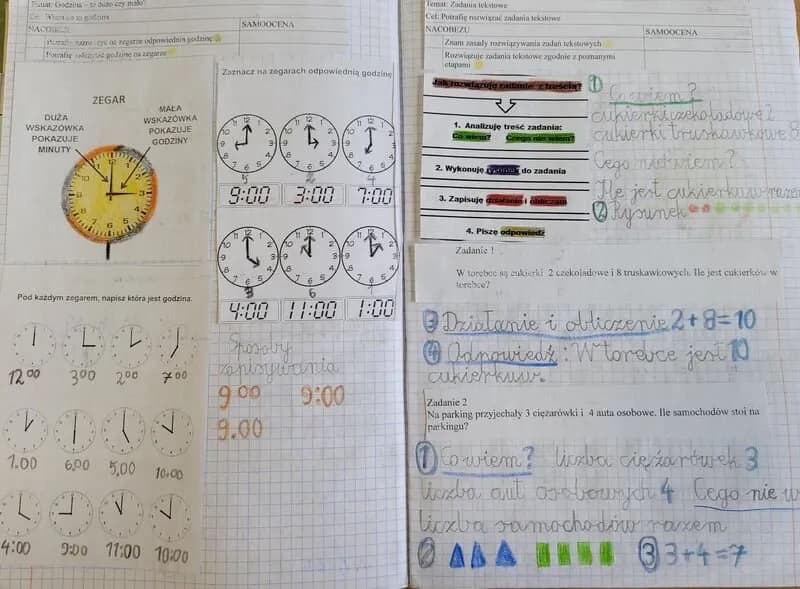 Temat: Godzina – to dużo czy mało?
Cel: Wiem co to godzina
NACOBEZU
SAMOOCENA
Potrafię zaznaczyć na zegarze odpowiednią godzinę
Potrafię odczytać godzinę na zegarze
ZEGAR
DUŻA
WSKAZÓWKA
POKAZUJE
MINUTY
MAŁA
WSKAZÓWKA
POKAZUJE
GODZINY
Pod każdym zegarem, napisz która jest godzina.
12⁰⁰ 3⁰⁰ 2⁰⁰ 7⁰⁰
1.00 6,00 5,00 10.00
4:00 9:00 11:00 10:00
Zaznacz na zegarach odpowiednią godzinę
9:00 3:00 7:00
4:00 11:00 1:00
Sposoby
zapisywania
9⁰⁰ 9:00
9.00
Temat: Zadania tekstowe
Cel: Potrafię rozwiązać zadania tekstowe
NACOBEZU
SAMOOCENA
Znam zasady rozwiązywania zadań tekstowych
Rozwiązuję zadania tekstowe zgodnie z poznanymi
etapami
Jak rozwiązuję zadanie z treścią?
1. Analizuję treść zadania:
Co wiem? Czego nie wiem?
2. Wykonuję rysunek do zadania
3. Zapisuję działanie i obliczam
4. Piszę odpowiedź
1 Co wiem?
cukierki czekoladowe 2
cukierki truskawkowe 8
Cego nie wiem?
Ile jest cukierkuw razem
2 Rysunek
Zadanie 1
W torebce są cukierki 2 czekoladowe i 8 truskawkowych. Ile jest cukierków w
torebce?
3 Działanie i obliczenie 2+8=10
4 Odpowiedź: W torebce jest 10
cukierkuw.
Zadanie 2
Na parking przyjechały 3 ciężarówki i 4 auta osobowe. Ile samochodów stoi na
parkingu?
1 Co wiem? liczba ciężarówek 3
liczba aut osobowych 4 Cego nie w
liczba samochodów razem
2 3 3+4=7